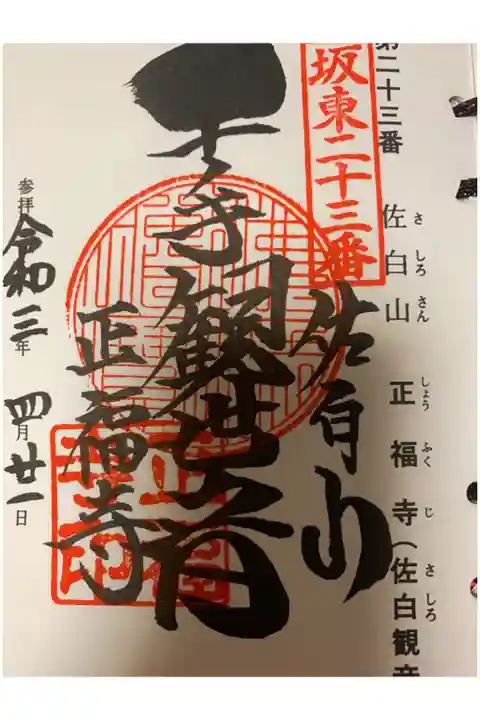 第二十三番 佐白山 正福寺(佐白観音
さしろさん しょうふくじ さしろ
坂東二十三番
佐白山
千手観世音
正福寺
参拝 令和三年 四月廿一日